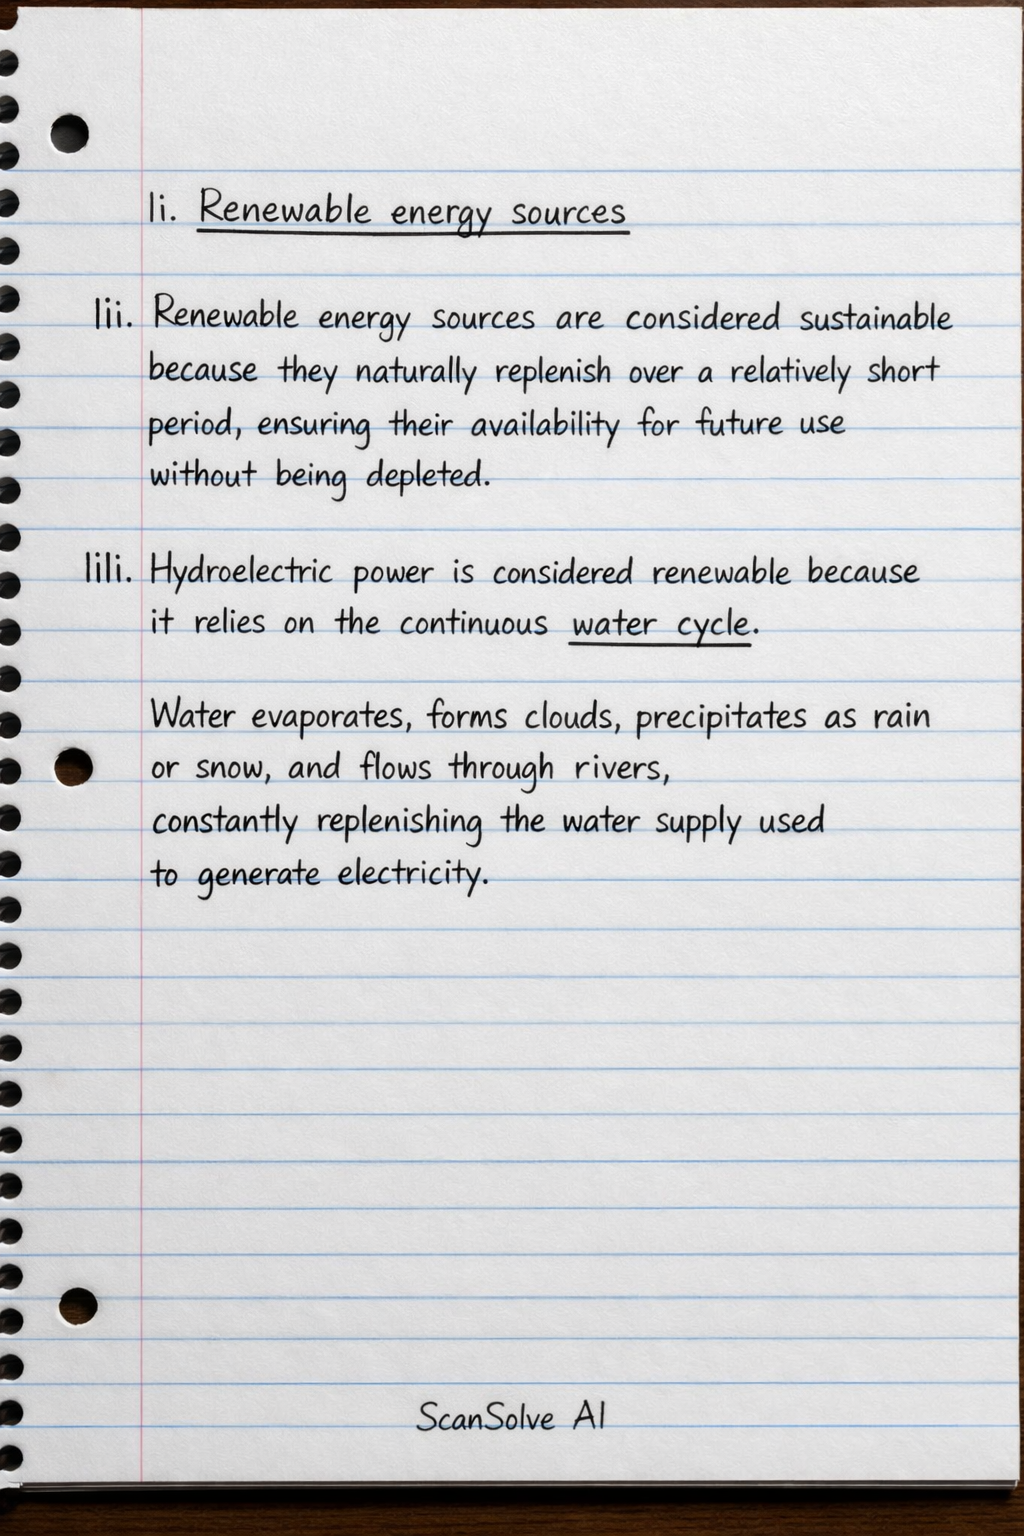 li. Renewable energy sources
lii. Renewable energy sources are considered sustainable
because they naturally replenish over a relatively short
period, ensuring their availability for future use
without being depleted.
lili. Hydroelectric power is considered renewable because
it relies on the continuous water cycle.
Water evaporates, forms clouds, precipitates as rain
or snow, and flows through rivers,
constantly replenishing the water supply used
to generate electricity.
ScanSolve AI